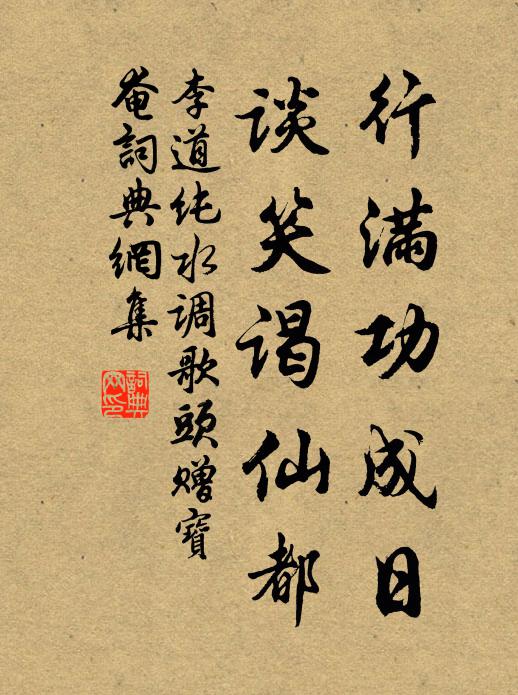 行满功成日
谈笑谒仙都
李道纯水调歌头赠寶
奄詞典網集
詞典网印